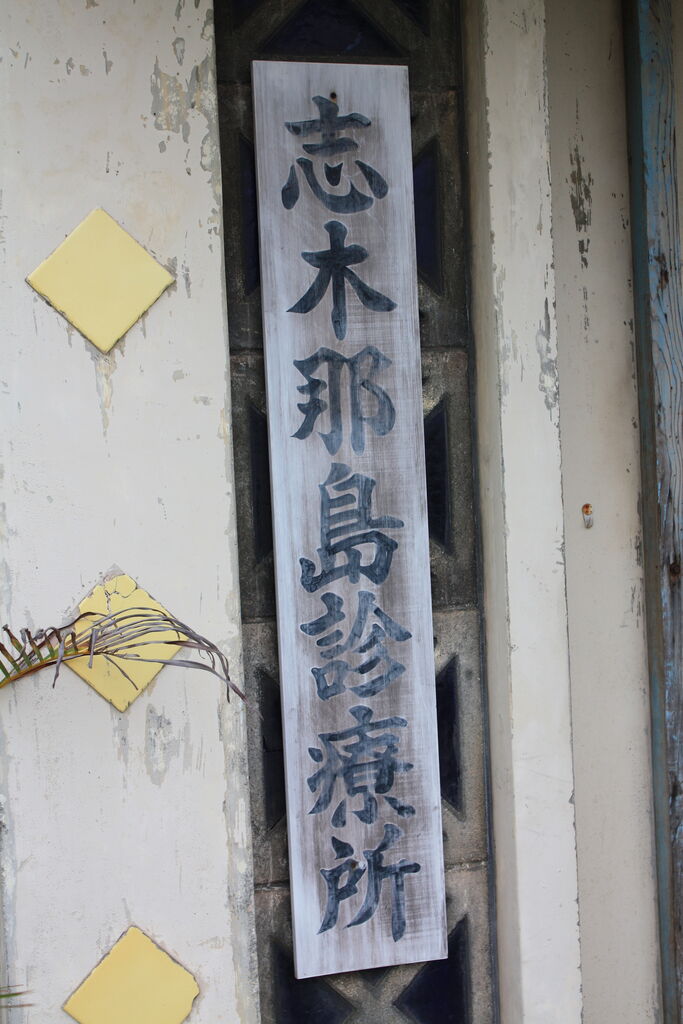 志木那島診療所